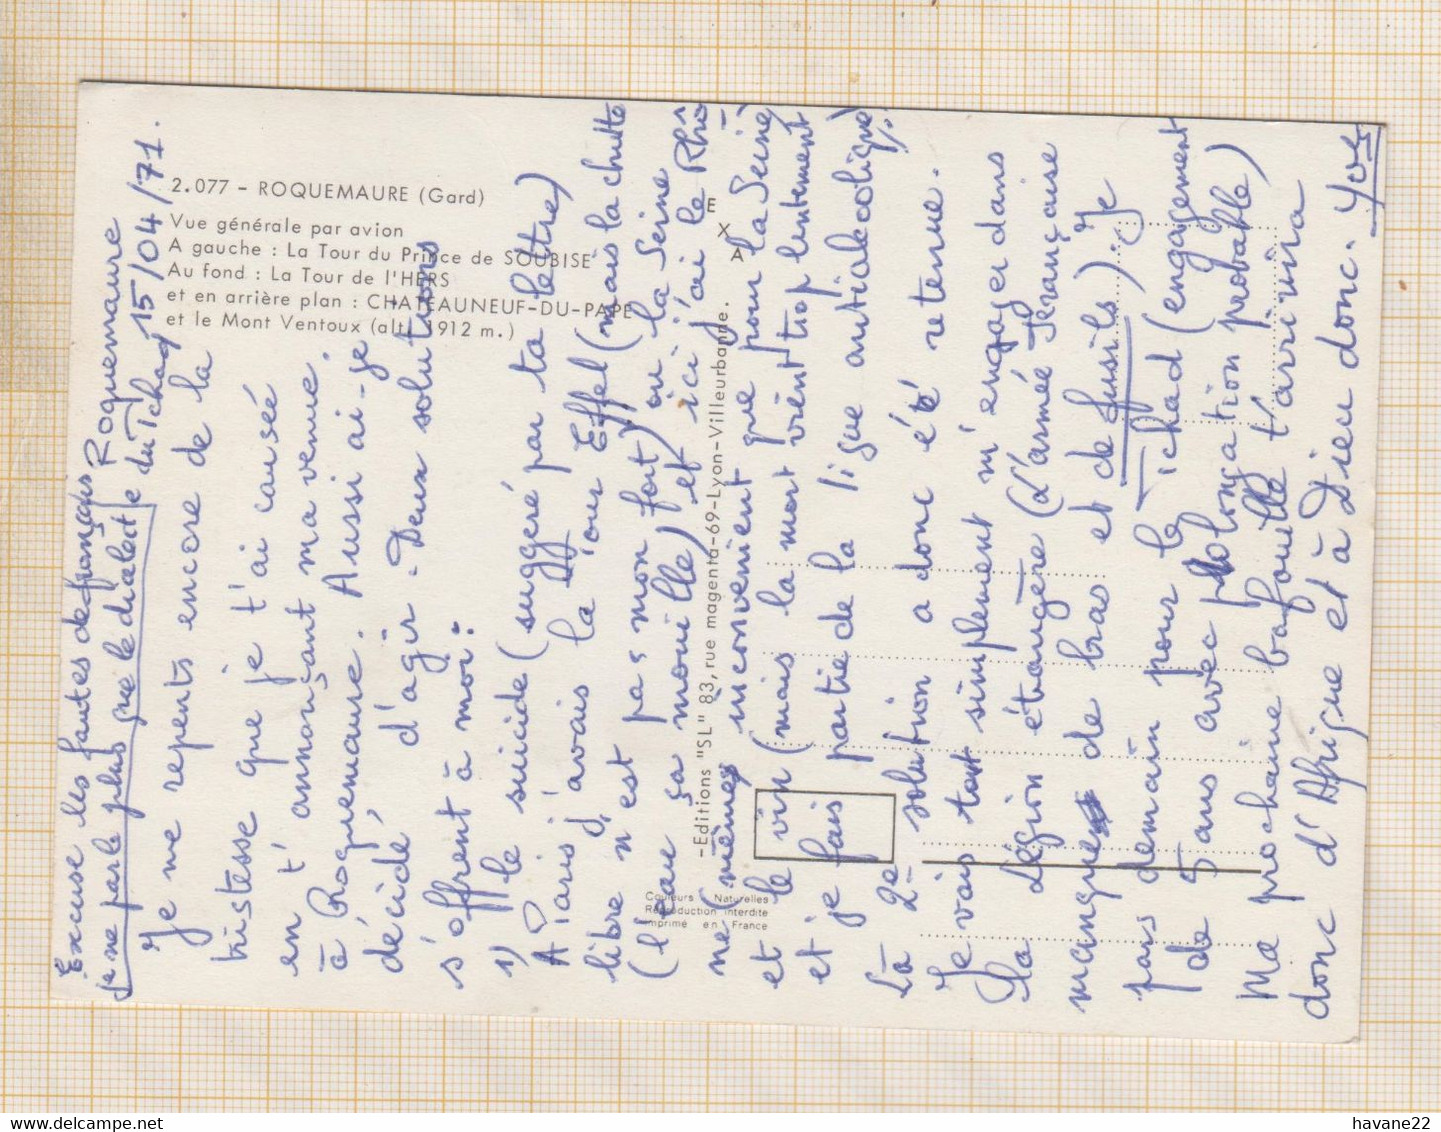 2.077 - ROQUEMAURE (Gard)
Vue générale par avion
A gauche : La Tour du Prince de SOUBISE
Au fond : La Tour de l'HERS
et en arrière plan : CHATEAUNEUF-DU-PAPE
et le Mont Ventoux (alt. 1912 m.)
EXA
-Editions "SL" 83, rue magenta-69-Lyon-Villeurbanne.
Couleurs Naturelles
Reproduction interdite
Imprimé en France
Roquemaure
15/04/71.
Excuse les fautes de français
je ne parle plus que le dialecte du Tchad
Je me repents encore de la
tristesse que je t'ai causée
en t'annonçant ma venue
à Roquemaure. Aussi ai-je
décidé d'agir. Deux solutions
s'offrent à moi :
1) le suicide (suggéré par ta lettre)
A Paris j'avais la Tour Effel (mais la chutte
libre n'est pas mon fort) ou la Seine
(l'eau ça mouille) et ici j'ai le Rhô
ne (mêmes inconvenient que pour la Seine)
et le vin (mais la mort vient trop lentement
et je fais partie de la ligue antialcoolique)
La 2e solution a donc été retenue.
Je vais tout simplement m'engager dans
la Légion étrangère (L'armée Française
manque de bras et de fusils). Je
pars demain pour le Tchad (engagement
de 5 ans avec prolongation probable)
Ma prochaine bafouille t'arrivera
donc d'Afrique et à Dieu donc.
havane22